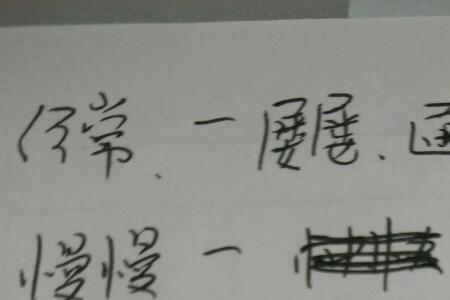 常、一屡屡、
慢慢一